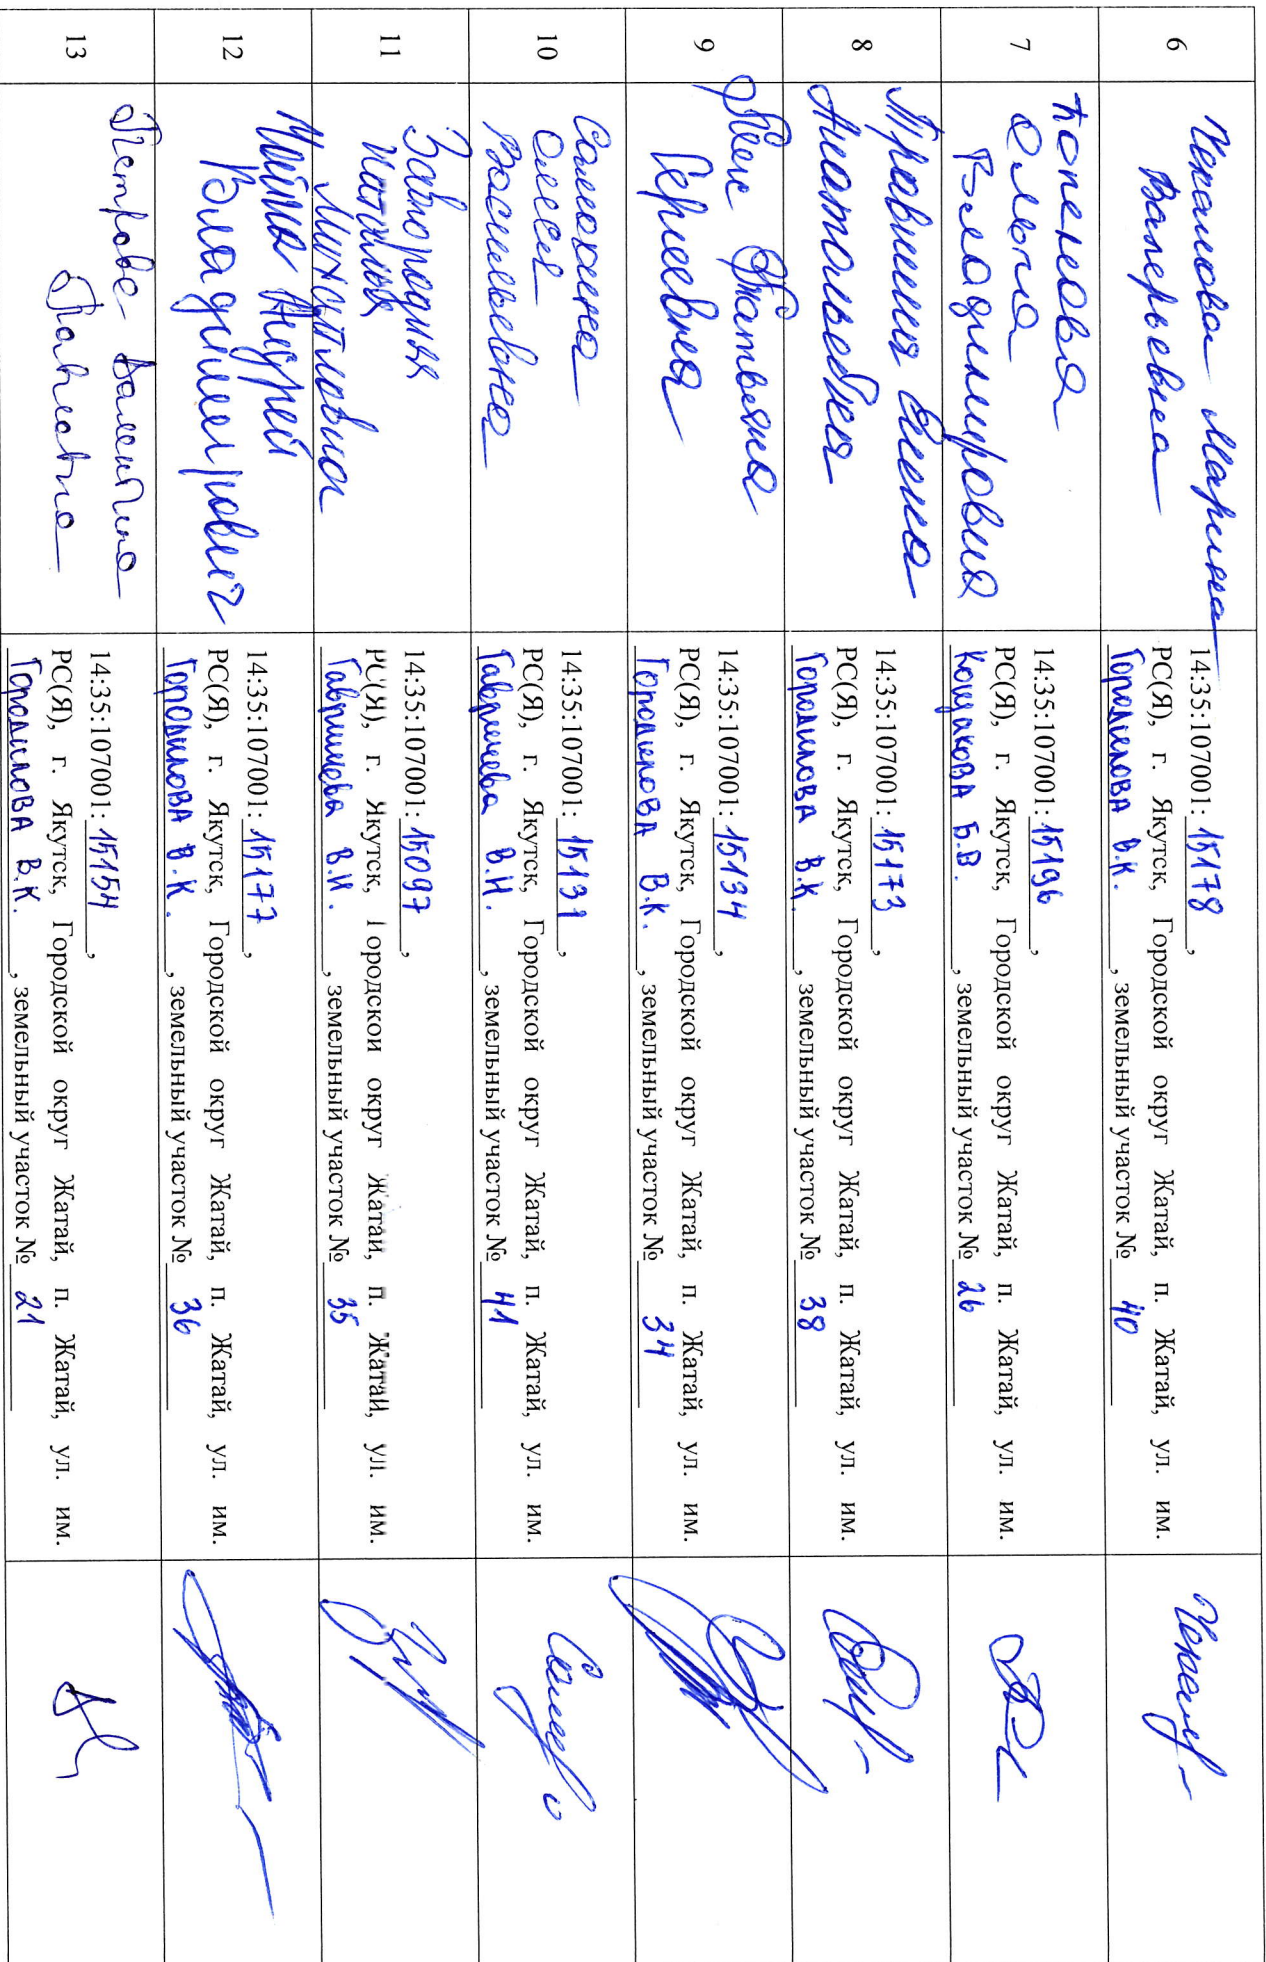 6
Чкалова Марина
Валерьевна
14:35:107001: 15178,
РС(Я), г. Якутск, Городской округ Жатай, п. Жатай, ул. им.
Горохова В.К., земельный участок № 40
7
Копылова
Ольга
Владимировна
14:35:107001: 15196,
РС(Я), г. Якутск, Городской округ Жатай, п. Жатай, ул. им.
Кошукова Б.В., земельный участок № 26
8
Елена
Анатольевна
14:35:107001: 15173,
РС(Я), г. Якутск, Городской округ Жатай, п. Жатай, ул. им.
В.К., земельный участок № 38
9
Татьяна
Сергеевна
14:35:107001: 15134,
РС(Я), г. Якутск, Городской округ Жатай, п. Жатай, ул. им.
В.К., земельный участок № 34
10
Самохина
Олеся
Васильевна
14:35:107001: 15131,
РС(Я), г. Якутск, Городской округ Жатай, п. Жатай, ул. им.
В.И., земельный участок № 41
11
Завгородняя
Наталья
Михайловна
14:35:107001: 15097,
РС(Я), г. Якутск, Городской округ Жатай, п. Жатай, ул. им.
В.И., земельный участок № 35
12
Андрей
Владимирович
14:35:107001: 15177,
РС(Я), г. Якутск, Городской округ Жатай, п. Жатай, ул. им.
В.К., земельный участок № 36
13
Петрова Валентина
Павловна
14:35:107001: 15154,
РС(Я), г. Якутск, Городской округ Жатай, п. Жатай, ул. им.
В.К., земельный участок № 21